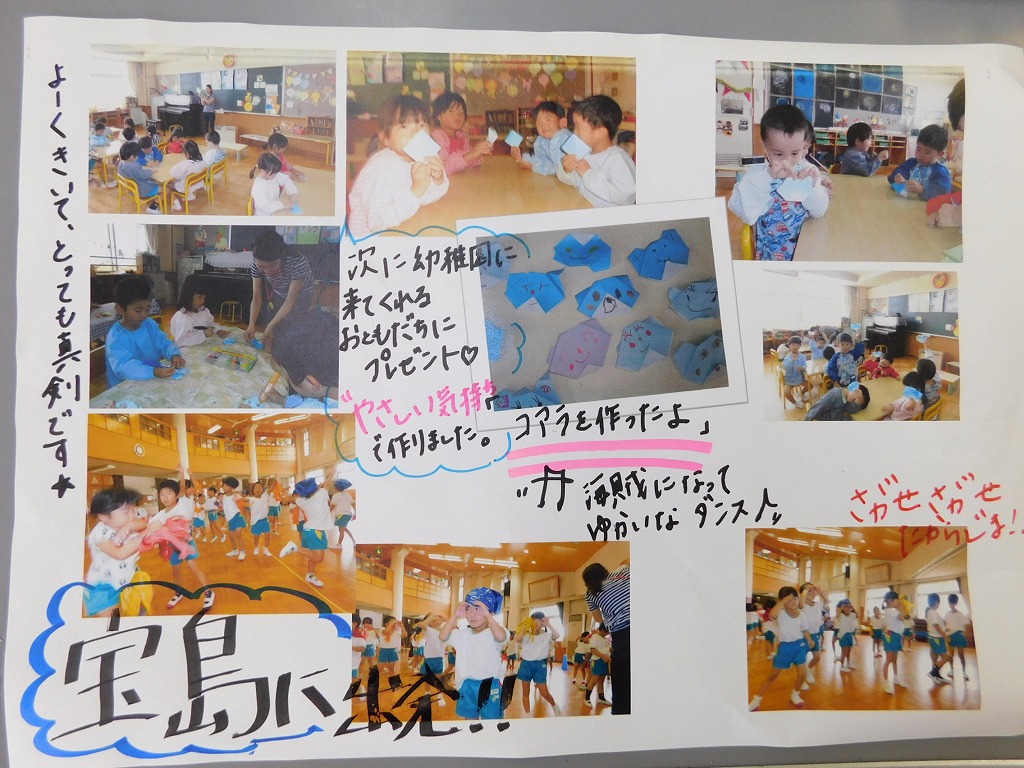 よーくきいて、とっても真剣です★
次に幼稚園に
来てくれる
おともだちに
プレゼント♡
"やさしい気持ち"
で作りました。
コアラを作ったよ」
"海賊になって
ゆかいな ダンス♪"
さがせ さがせ
たからじま!!
宝島に出発!!